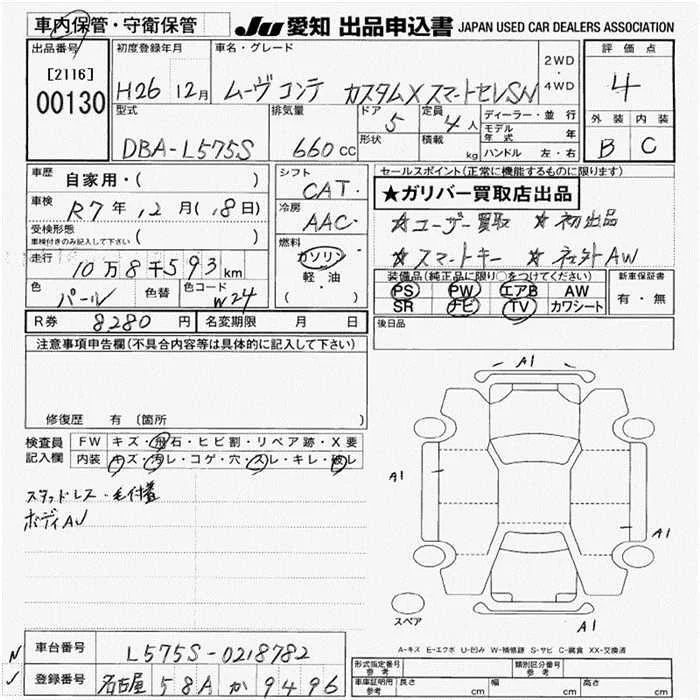 車内保管・守衛保管
JU 愛知 出品申込書 JAPAN USED CAR DEALERS ASSOCIATION
出品番号
[2116]
00130
初度登録年月
H26 12月
車名・グレード
ムーヴ コンテ カスタムX スマートセレVSN
2WD
・
4WD
評価点
4
外装 内装
B C
型式
DBA-L575S
排気量
660 CC
ドア 5
形状
定員 4人
積載 kg
ディーラー・並行
モデル年式 年
ハンドル 左・右
車歴
自家用・( )
車検
R7年 12月(18日)
受検形態
車検付きのみ記入して下さい ( )
走行
10万8千593km
色
パール
色替
色コード
W24
シフト
CAT.
冷房
AAC.
燃料
ガソリン
軽・油
( )
セールスポイント(正常に機能するものに限ります)
★ガリバー買取店出品
☆ユーザー買取 ☆初出品
☆スマートキー ☆社外AW
装備品(純正品に限り〇をつけてください)
PS PW エアB AW
SR ナビ TV カワシート
新車保証書
有・無
後日品
R券 8280 円 名変期限 月 日
注意事項申告欄(不具合内容等は具体的に記入して下さい)
修復歴 有 〔箇所 〕
検査員
記入欄
FW キズ・飛石・ヒビ割・リペア跡・X要
内装 キズ・汚レ・コゲ・穴・スレ・キレ・破レ
スタッドレス・毛付着
ボディAU
A1
A1
A1
A1
スペア
A-キズ E-エクボ U-凹み W-補修跡 S-サビ C-腐食 XX-交換済
N
J
車台番号 L575S-0218782
登録番号 名古屋 58A か 9496
形式指定番号
参考
類別区分番号
参考
車庫証明用
参考
長さ cm 幅 cm 高さ cm